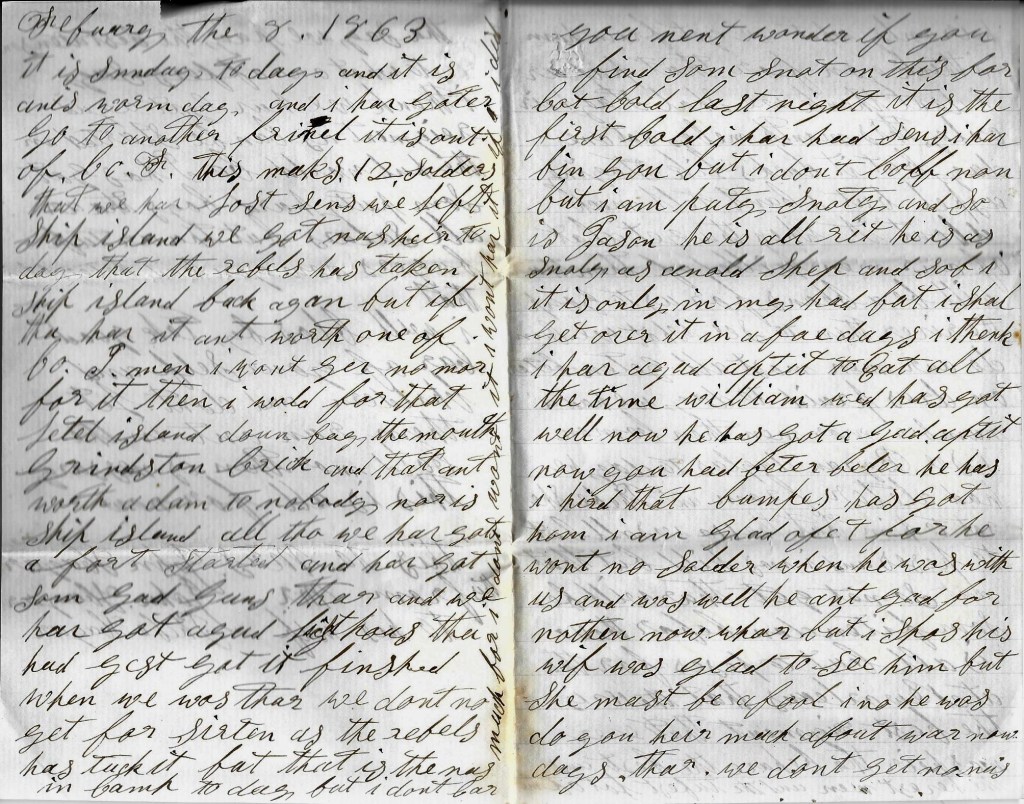 Febuary the 8. 1863
it is Sunday to day and it is
and worm day and i har goter
go to another frinel it is out
of Co. F. this maks 12 solders
that we har lost sens we left
Ship island we got nus heir to
day that the rebels has taken
ship island back agan but if
tha har it ant worth one of
Co. F. men i wont ger no mor
for it then i wold for that
letel island doun bay the mouth
Grindston Crick and that ant
worth a dam to nobody nor is
Ship island all tho we har got
a fort started and har got
som gad guns thar and we
har got a gud light hous tha
had gest got it finshed
when we was thar we dont no
get for sirten as the rebels
has tuck it but that is the nus
in Camp to day but i dont Car
much for i dont want it i wont her at it
you nent wonder if you
find som snot on this for
Cot Cold last night it is the
first Cold i har had sens i har
bin gon but i dont Coff non
but i am puty snoty and so
is Jason he is all rit he is as
snoty as an old shep and sob i
it is only in my had but i shal
get over it in a foe days i thenk
i har a gud aptit to Eat all
the time william wed has got
well now he has got a gad aptit
now you had beter beler he has
i hird that bumpes has got
hom i am glad of et for he
wont no solder when he was with
us and was well he ant gad for
nothen now whar but i spos his
wif was glad to see him but
she must be a fool ino he was
do you heir much about war now
days thar. we dont get no nus